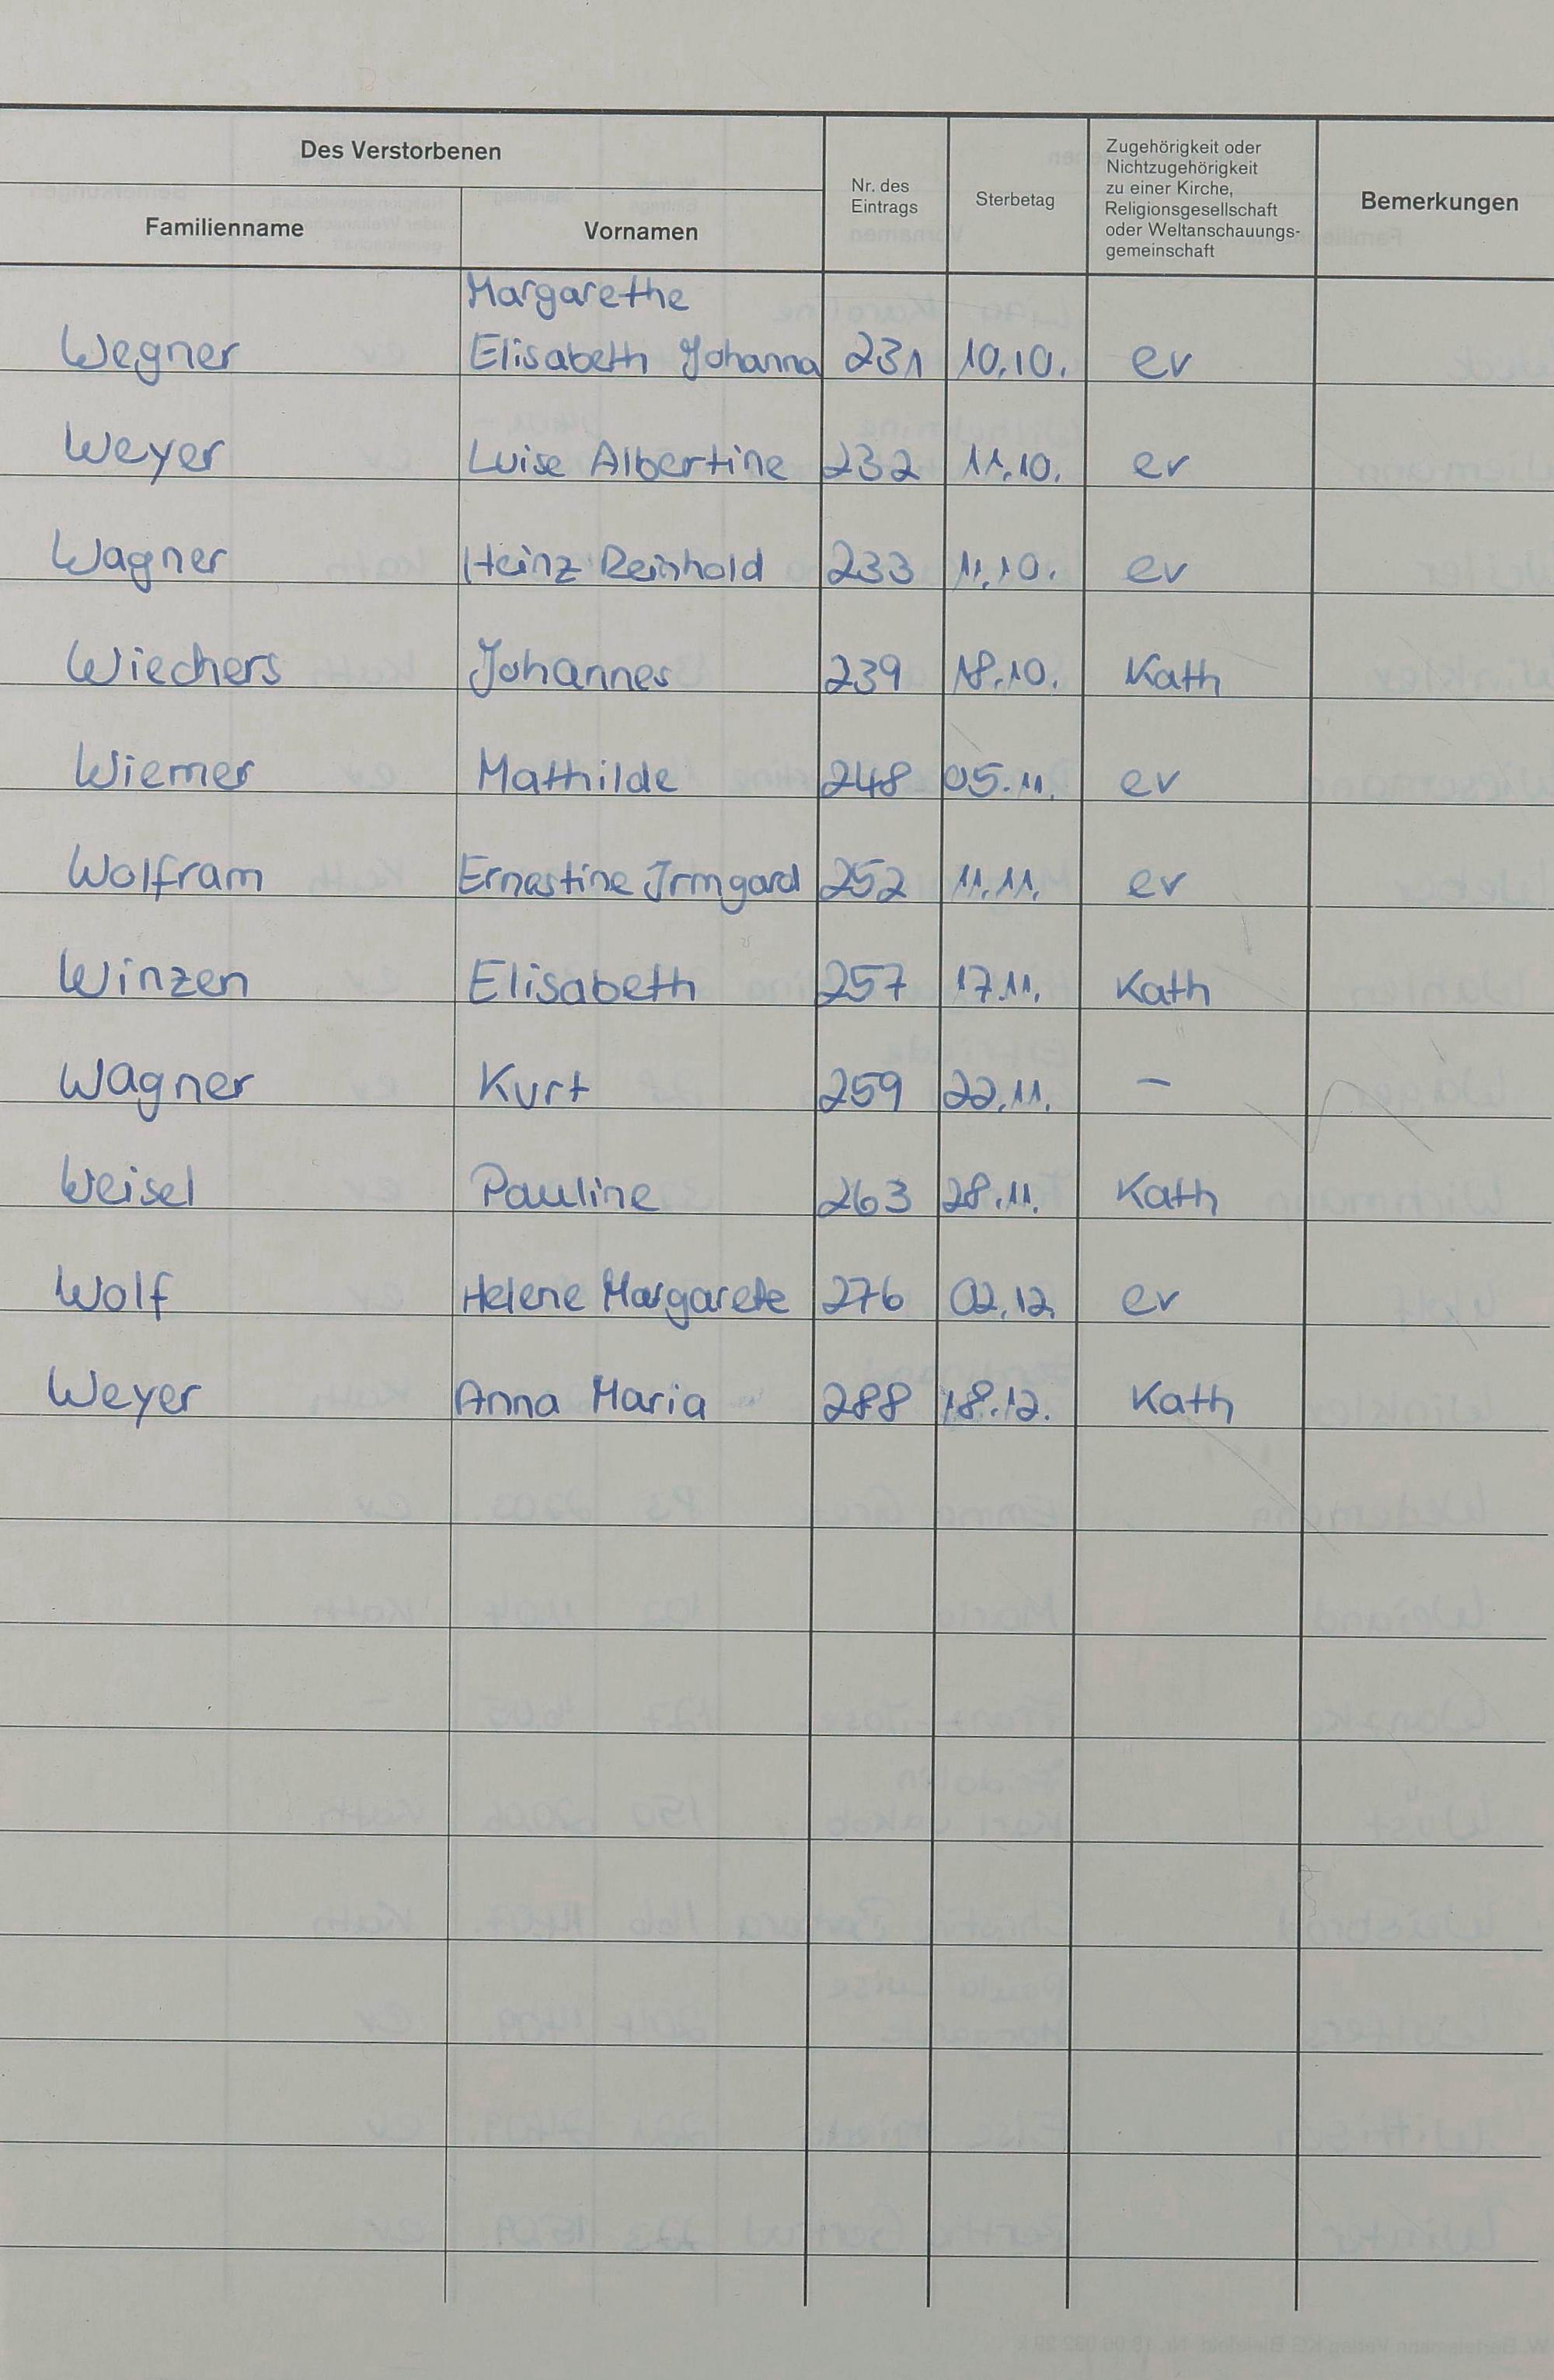 Des Verstorbenen
Familienname
Vornamen
Nr. des
Eintrags
Sterbetag
Zugehörigkeit oder
Nichtzugehörigkeit
zu einer Kirche,
Religionsgesellschaft
oder Weltanschauungs-
gemeinschaft
Bemerkungen
Margarethe
Wegner Elisabeth Johanna 231 10.10. ev
Weyer Luise Albertine 232 11.10. ev
Wagner Heinz Reinhold 233 11.10. ev
Wiechers Johannes 239 18.10. Kath
Wiemer Mathilde 248 05.11. ev
Wolfram Ernestine Irmgard 252 11.11. ev
Winzen Elisabeth 257 17.11. Kath
Wagner Kurt 259 22.11. –
Weisel Pauline 263 28.11. Kath
Wolf Helene Margarete 276 02.12. ev
Weyer Anna Maria 288 18.12. Kath